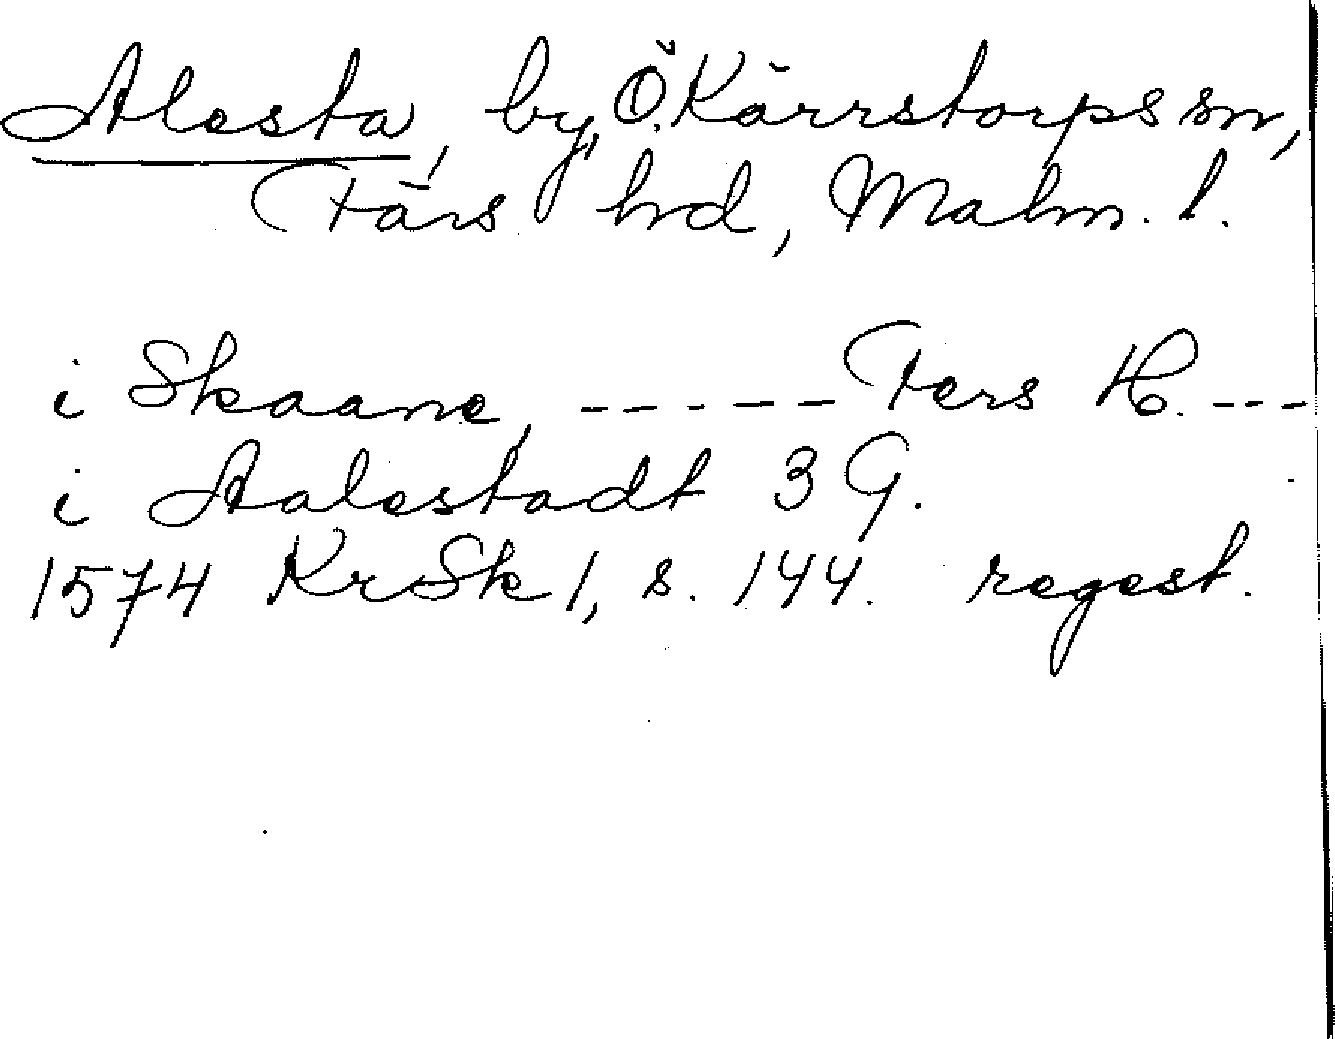 Alesta, by, Ö. Kärrstorps sn,
Färs hd, Malm. l.
i Skaane, ------ Fers H. ---
i Aalestadt 3 G.
1574 KrSk 1, s. 144. regest.